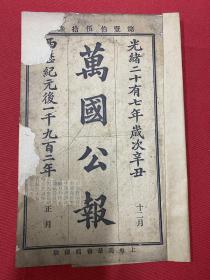 第壹百伍拾叁
光緒二十有七年歲次辛丑
十二月
萬國公報
西歷紀元後一千九百二年
正月
上海美華書館擺印